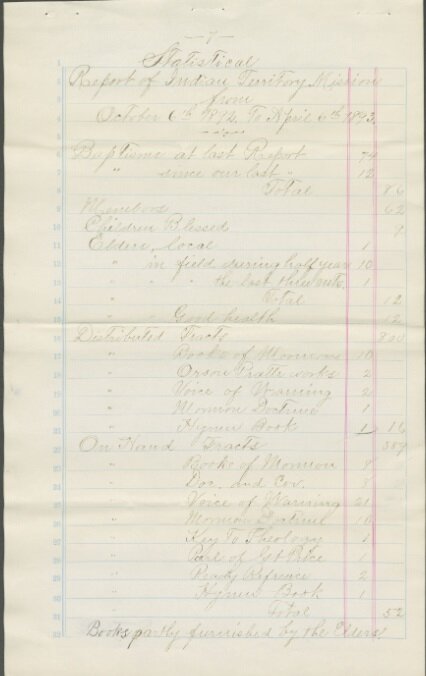 — 7 —
Statistical
Report of Indian Territory Mission
from
October 6th 1892 To April 6th 1893.
Baptisms at last Report 74
" since our last " 12
Total 86
Members 62
Children Blessed
Elders, local 1
" in field during half year 10
" " " the last three mts. 1
Total 12
" Good health 12
Distributed Tracts 800
" Books of Mormon 10
" Orson Pratts works 2
" Voice of Warning 2
" Mormon Doctrine 1
" Hymn Book 1 16
On Hand Tracts 587
" Books of Mormon 8
" Doc. and Cov. 8
" Voice of Warning 21
" Mormon Doctrine
" Key To Theology 1
" Pearl of Gt Price 1
" Ready Refrence 2
" Hymn Book 1
" Total 52
Books partly furnished by the Elders.